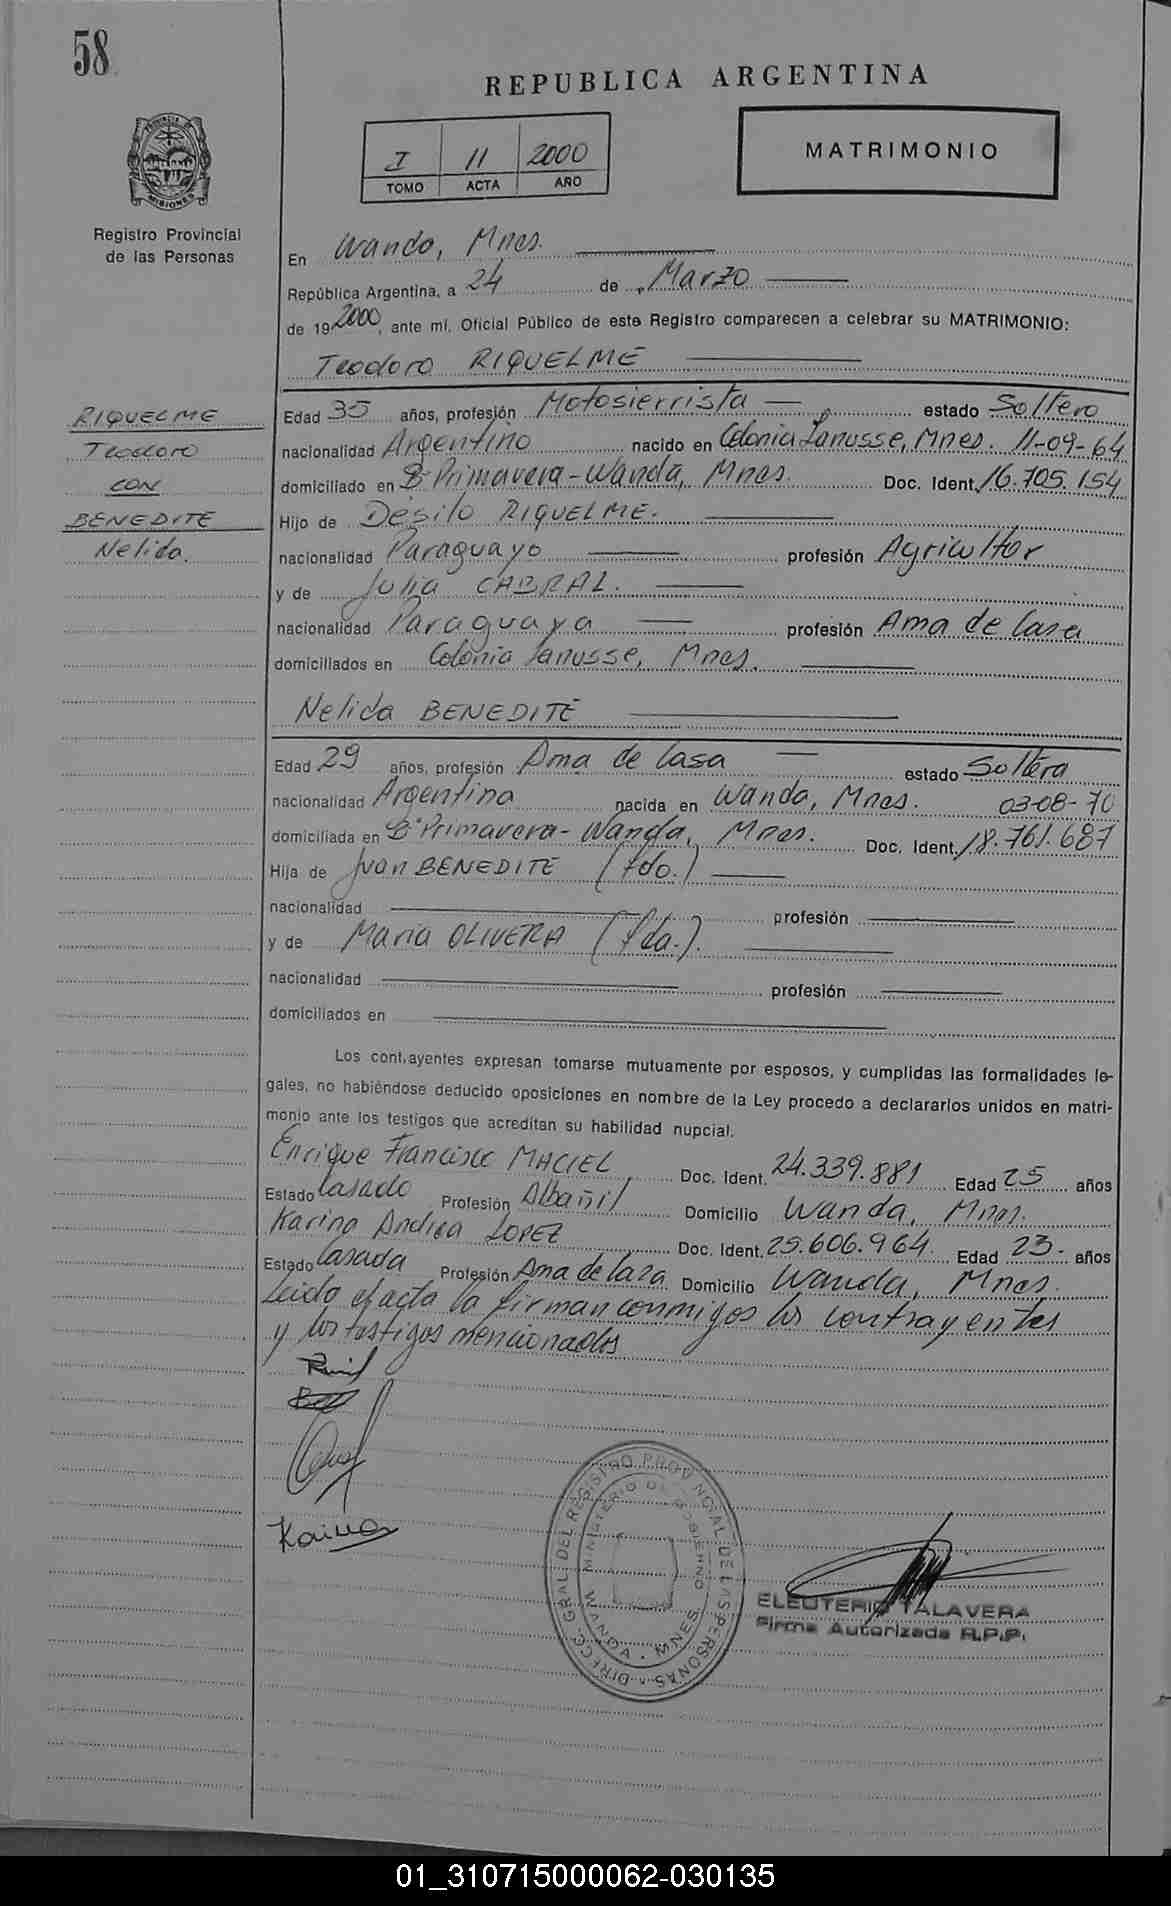 58
REPUBLICA ARGENTINA
I 11 2000
TOMO ACTA AÑO
MATRIMONIO
PROVINCIA DE MISIONES
Registro Provincial
de las Personas
En Wanda, Mnes.
República Argentina, a 24 de Marzo
de 19 2000, ante mí, Oficial Público de este Registro comparecen a celebrar su MATRIMONIO:
Teodoro RIQUELME
RIQUELME
Teodoro
CON
BENEDITE
Nelida.
Edad 35 años, profesión Motosierrista estado Soltero
nacionalidad Argentino nacido en Colonia Lanusse, Mnes. 11-09-64
domiciliado en B° Primavera - Wanda, Mnes. Doc. Ident. 16.705.154
Hijo de Desilo RIQUELME.
nacionalidad Paraguayo profesión Agricultor
y de Julia CABRAL.
nacionalidad Paraguaya profesión Ama de Casa
domiciliados en Colonia Lanusse, Mnes.
Nelida BENEDITE
Edad 29 años, profesión Ama de Casa estado Soltera
nacionalidad Argentina nacida en Wanda, Mnes. 03-08-70
domiciliada en B° Primavera - Wanda, Mnes. Doc. Ident. 18.761.687
Hija de Juan BENEDITE (fdo.)
nacionalidad profesión
y de Maria OLIVERA (fda.).
nacionalidad profesión
domiciliados en
Los cont.ayentes expresan tomarse mutuamente por esposos, y cumplidas las formalidades le-
gales, no habiéndose deducido oposiciones en nombre de la Ley procedo a declararlos unidos en matri-
monio ante los testigos que acreditan su habilidad nupcial.
Enrique Francisco MACIEL Doc. Ident. 24.339.881 Edad 25 años
Estado Casado Profesión Albañil Domicilio Wanda, Mnes.
Karina Andrea LOPEZ Doc. Ident. 25.606.964. Edad 23- años
Estado Casada Profesión Ama de Casa Domicilio Wanda, Mnes.
Leida el acta la firman conmigos los contrayentes
y los testigos mencionados
Karina
DIRECC. GRAL. DEL REGISTRO PROVINCIAL DE LAS PERSONAS
MINISTERIO DE GOBIERNO
WANDA - MNES
ELEUTERIO TALAVERA
Firma Autorizada R.P.P.
01_310715000062-030135